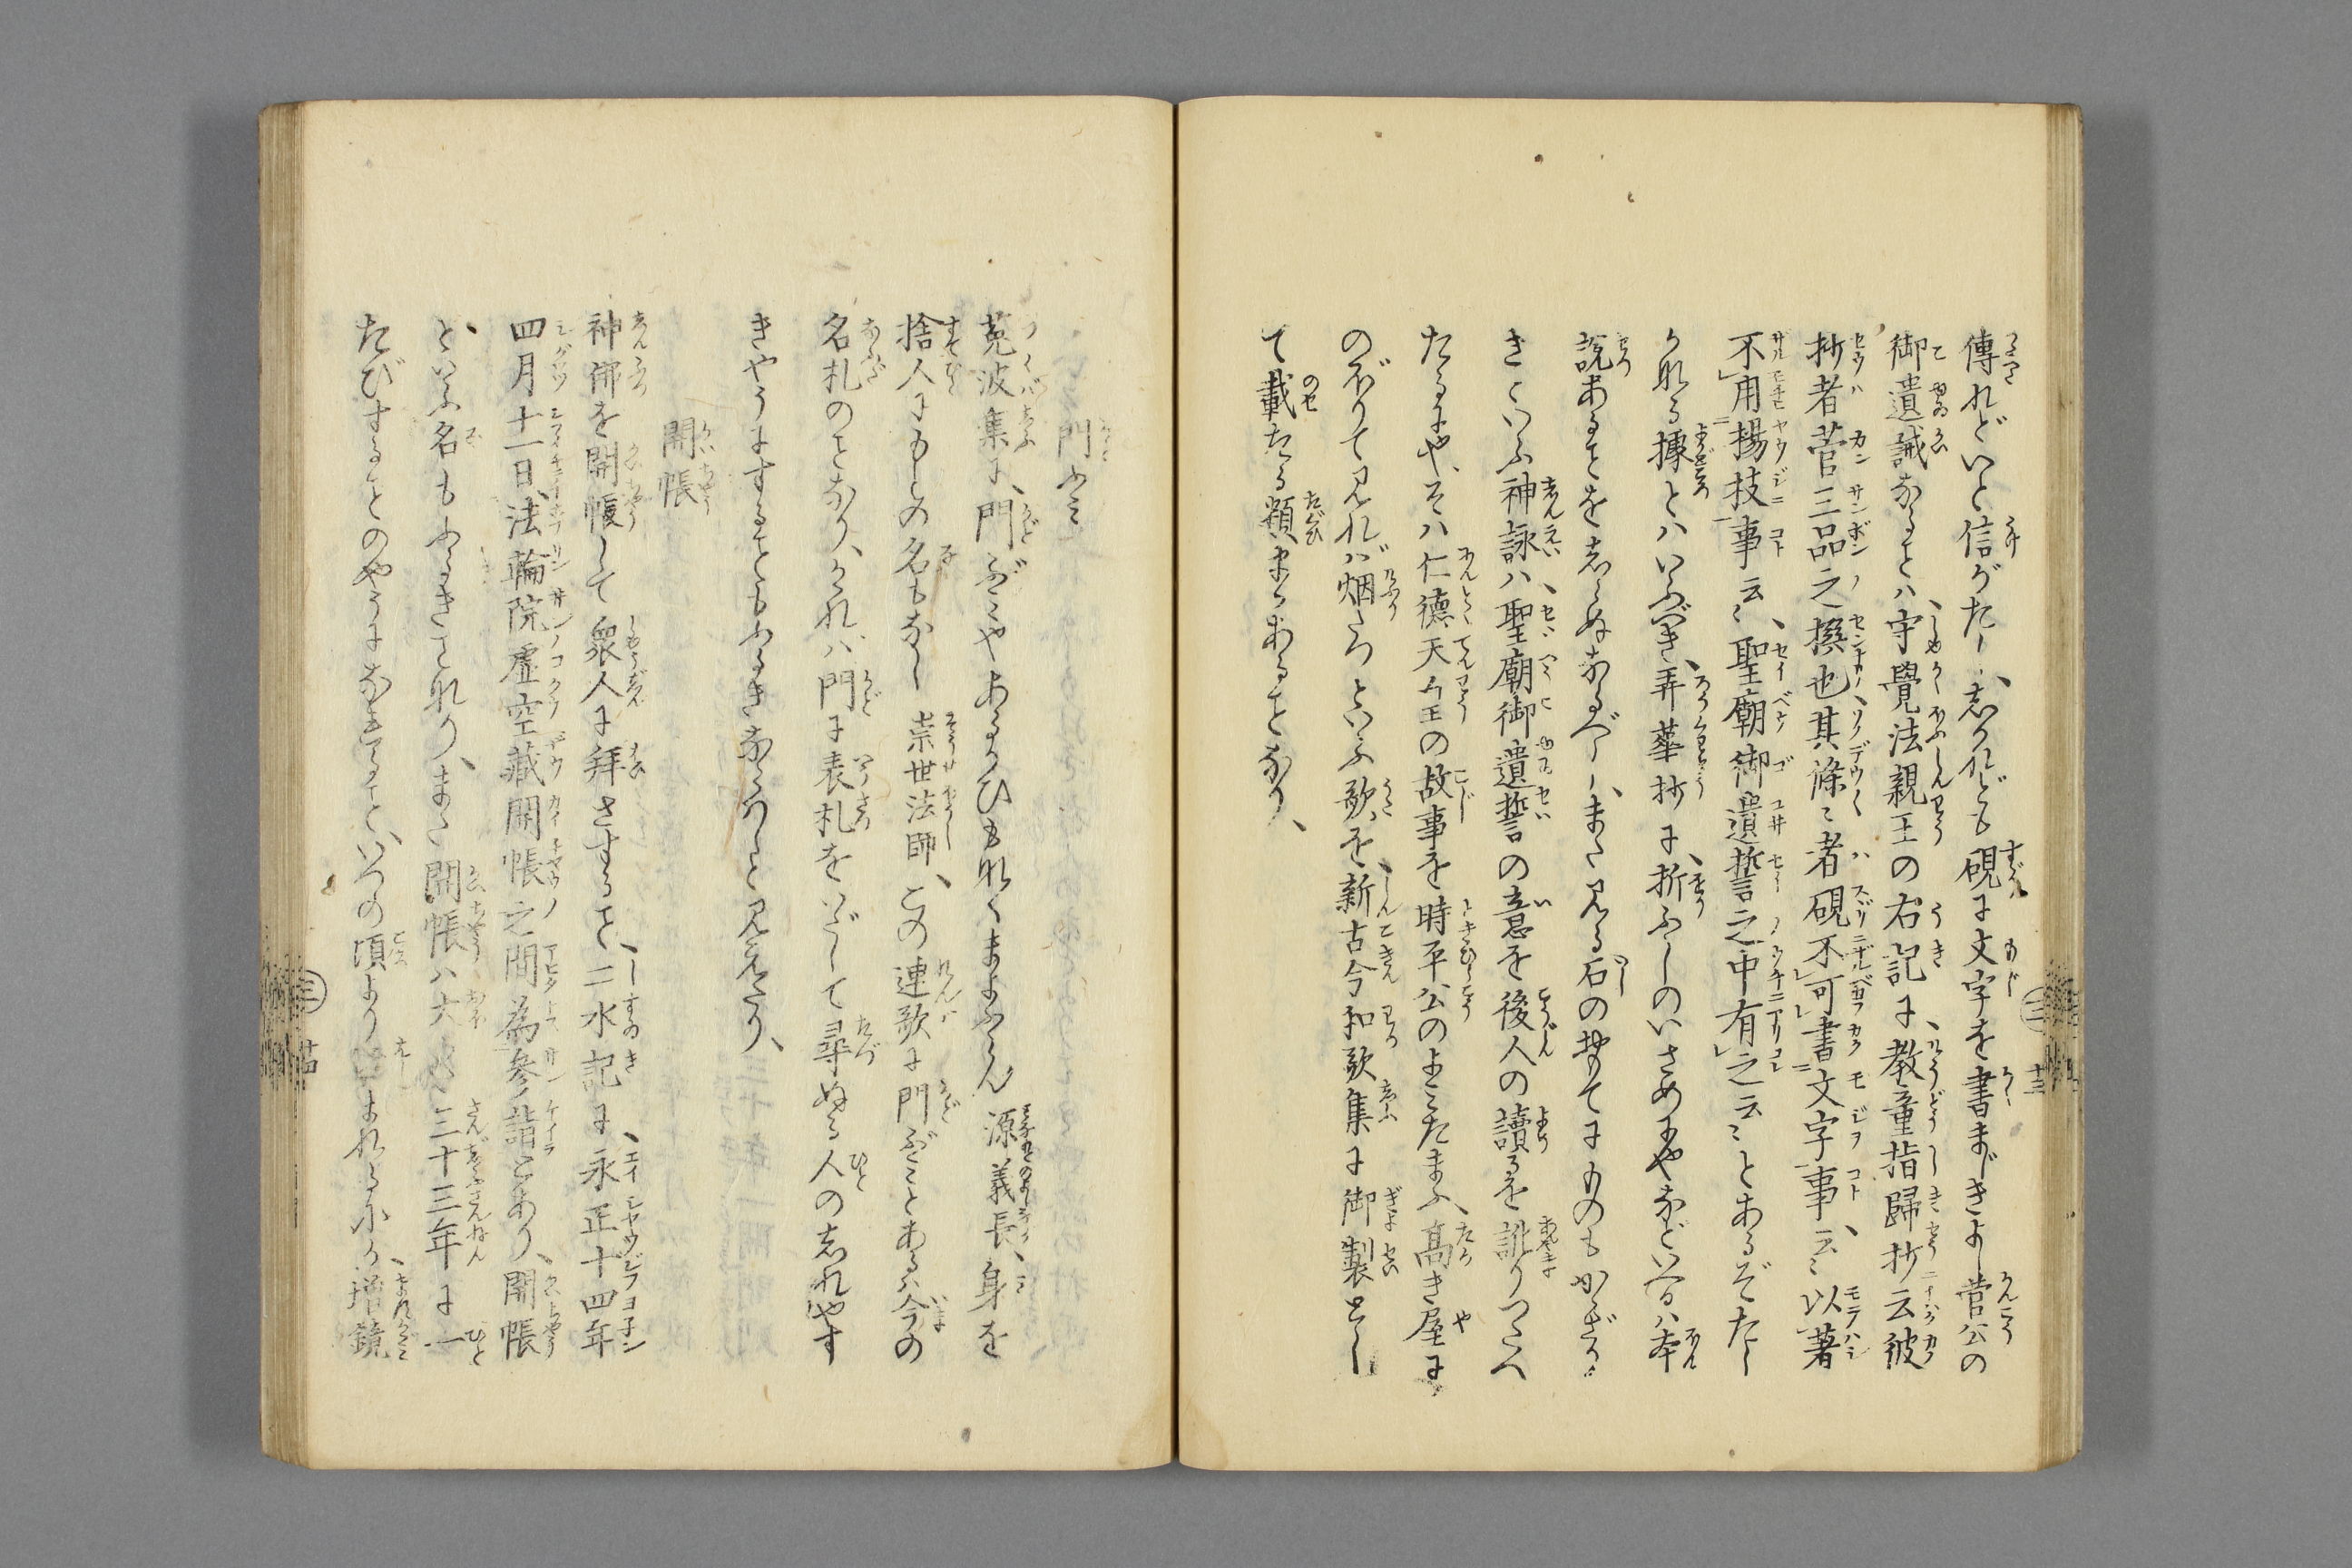 傳れどいと信がたし、志かれども硯に文字を書まじきよし菅公の
御遺誡なることハ、守覺法親王の右記に、教童指歸抄云彼
抄者菅三品之撰也其條〻者硯不可書文字事、云〻以著
不用揚枝事云〻、聖廟御遺誓之中有之云〻とあるぞたし
かなる據とハいふべき、弄華抄に、折ふしのいさめにやなどいへるハ本
説あることを志らぬなるべし、また見る石の
きといふ神詠ハ、聖廟御遺誓の意を後人の讀るを訛りつたへ
たるにや、そハ仁德天皇の故事を時平公のよみたまふ、髙き屋に
のぼりて見れば烟たつといふ歌を、新古今和歌集に御製とし
て載たる類またあることなり、
門ふみ
菟波集に、門ぶみやあるかひもなくまよふらん 源義長、身を
捨人にもとの名もなし 崇世法師、この連歌に門ぶみとあるハ今の
名札のことなり、かゝれハ門に表札をいだして尋ぬる人の志れやす
きやうにすることもふるきならハしと見えたり、
開帳
神佛を開帳して衆人に拜さすること、二水記に、永正十四年
四月十一日、法輪院虚空藏開帳之間為參詣とあり、開帳
といふ名もふるきことなり、また開帳ハ大 三十三年に一
たびすることのやうになれること、いつの頃より なるにか、増鏡
三 十三
三 十四